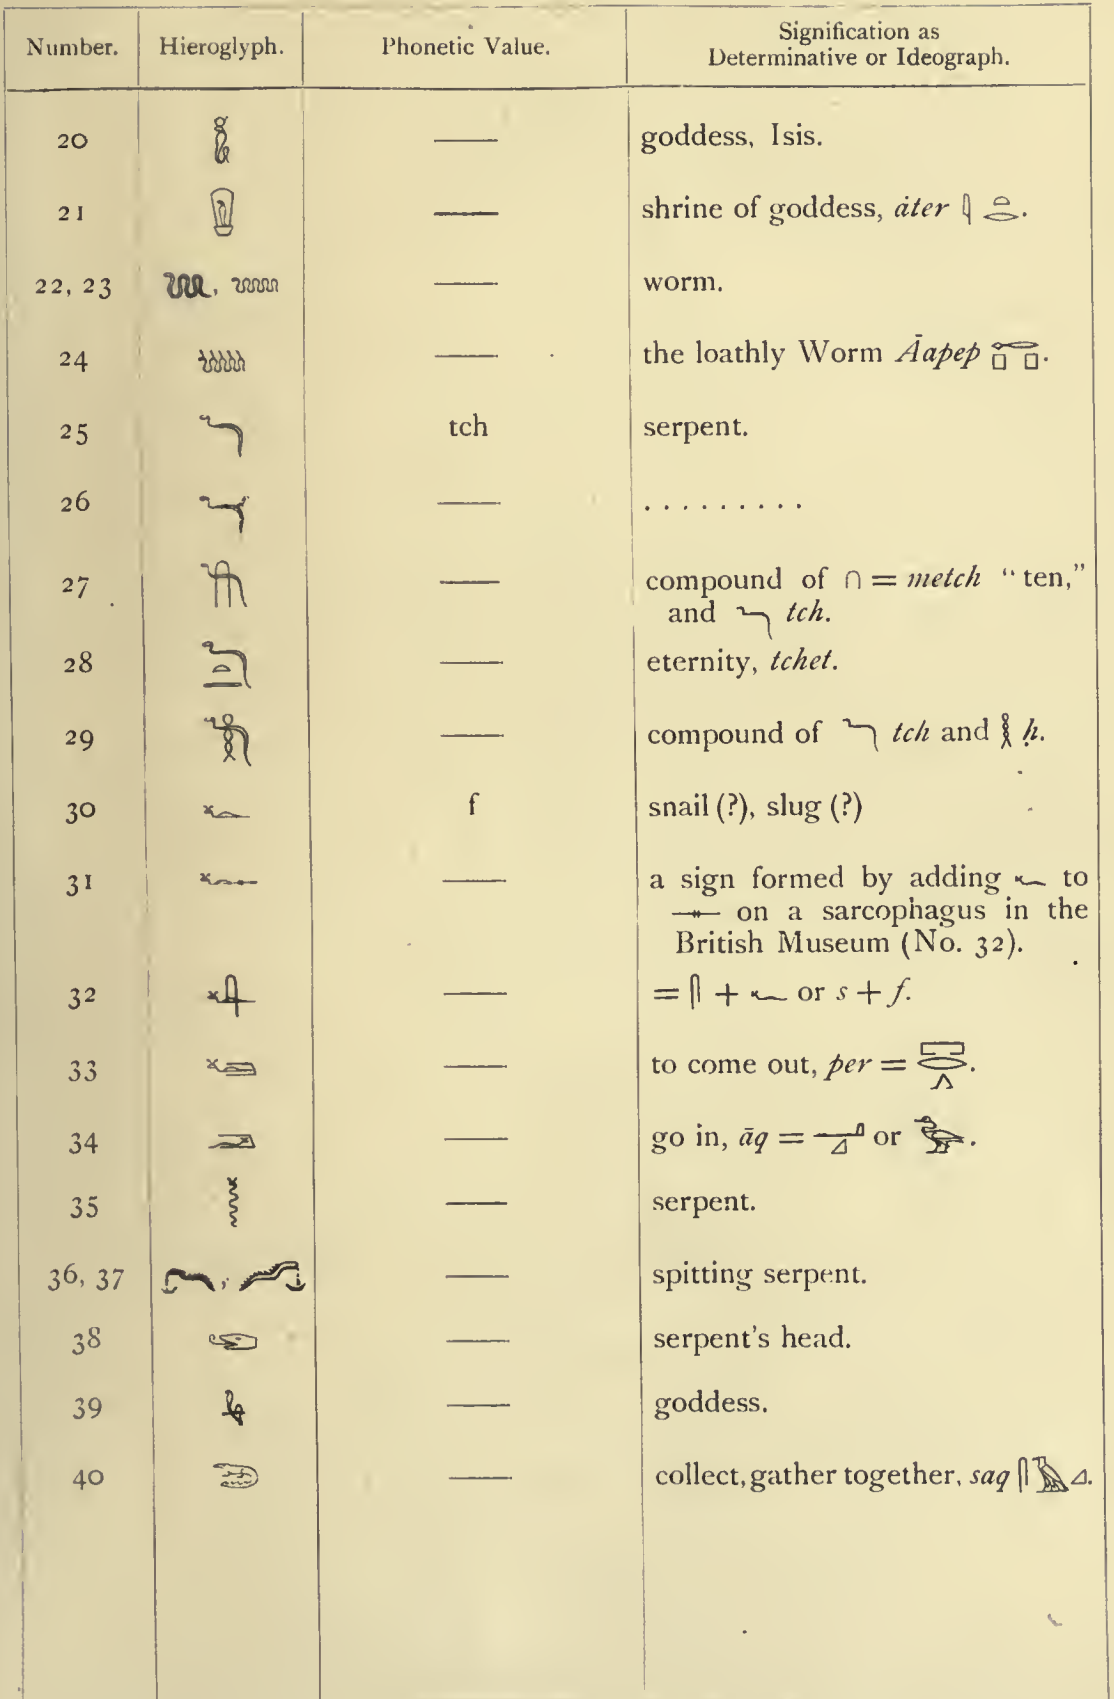 Number. Hieroglyph. Phonetic Value. Signification as
Determinative or Ideograph.
20 — goddess, Isis.
21 — shrine of goddess, ȧter 𓇋𓏏𓂋.
22, 23 , — worm.
24 — the loathly Worm Āapep
25 tch serpent.
26 — . . . . . . . . .
27 — compound of ∩ = metch “ten,”
and 𓆓 tch.
28 — eternity, tchet.
29 — compound of 𓆓 tch and 𓎛 ḥ.
30 𓆑 f snail (?), slug (?)
31 — a sign formed by adding 𓆑 to
𓊃 on a sarcophagus in the
British Museum (No. 32).
32 — = 𓋴 + 𓆑 or s + f.
33 — to come out, per = 𓉐𓂋𓂻.
34 — go in, āq = 𓂝𓈎 or 𓅭.
35 — serpent.
36, 37 , — spitting serpent.
38 — serpent's head.
39 — goddess.
40 — collect, gather together, saq 𓋴𓄿𓈎.